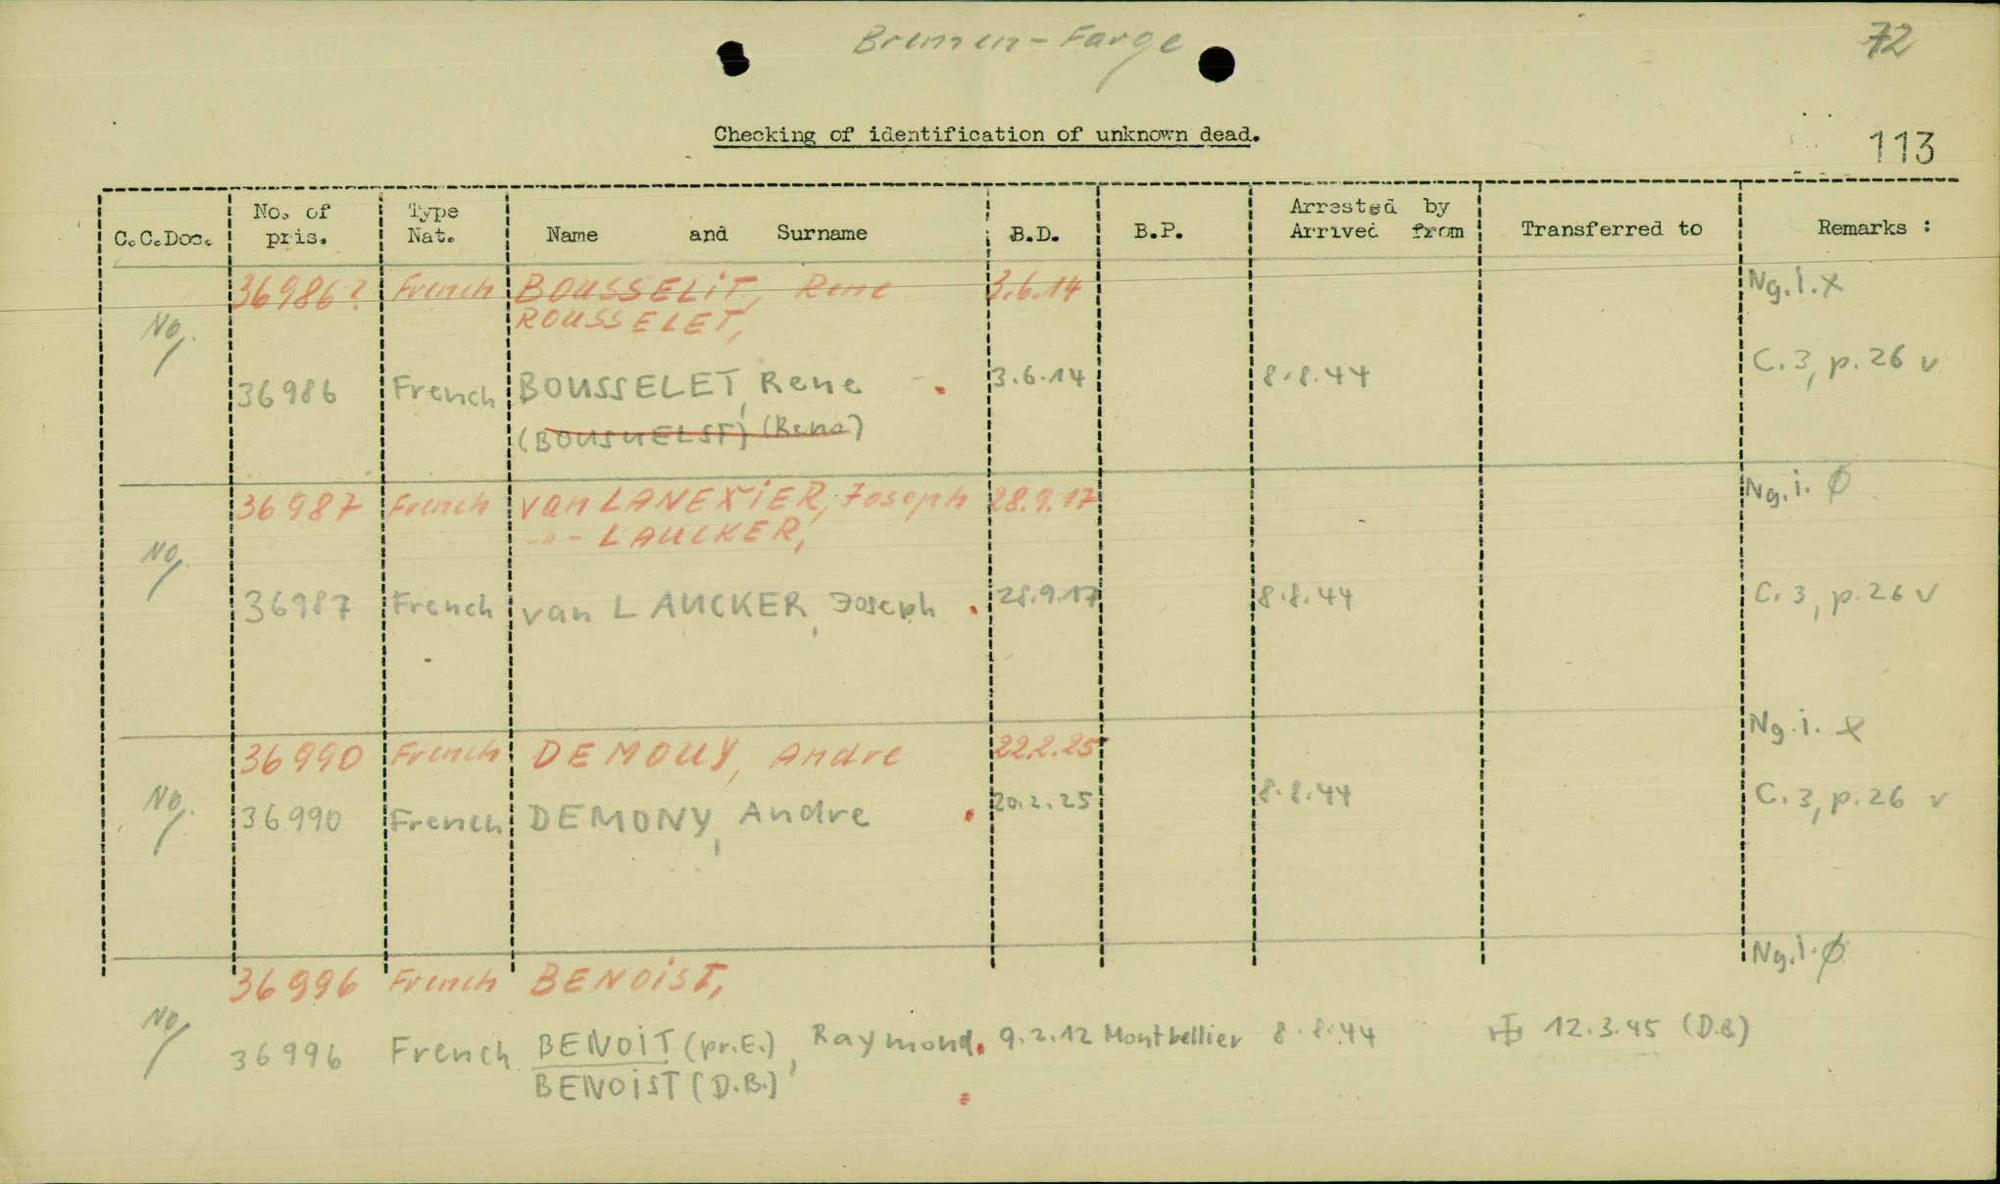 Bremen-Farge
72
Checking of identification of unknown dead.
113
C.C.Doc. No. of pris. Type Nat. Name and Surname B.D. B.P. Arrested by Arrived from Transferred to Remarks :
36986? French BOUSSELiT, Rene 3.6.14 Ng.i.x
No/. ROUSSELET,
36986 French BOUSSELET, Rene 3.6.14 8.8.44 C.3, p.26 v
(Rene)
36987 French van LANEXiER, Joseph 28.9.17 Ng.i. Ø
No/. -"- LAUCKER,
36987 French van LAUCKER, Joseph 28.9.17 8.8.44 C.3, p.26 v
36990 French DEMOUY, Andre 22.2.25 Ng.i. x
No/. 36990 French DEMONY, Andre 20.2.25 8.8.44 C.3, p.26 v
36996 French BENOiST, Ng.i. Ø
No/ 36996 French BENOiT (pr.E.), Raymond. 9.2.12 Montbellier 8.8.44 12.3.45 (D.B)
BENOiST (D.B.)